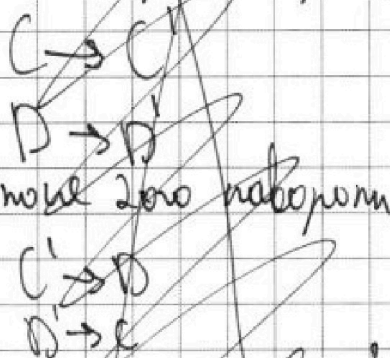 C → C'
D → D'
после 2ого поворота
C' → D
D' → C